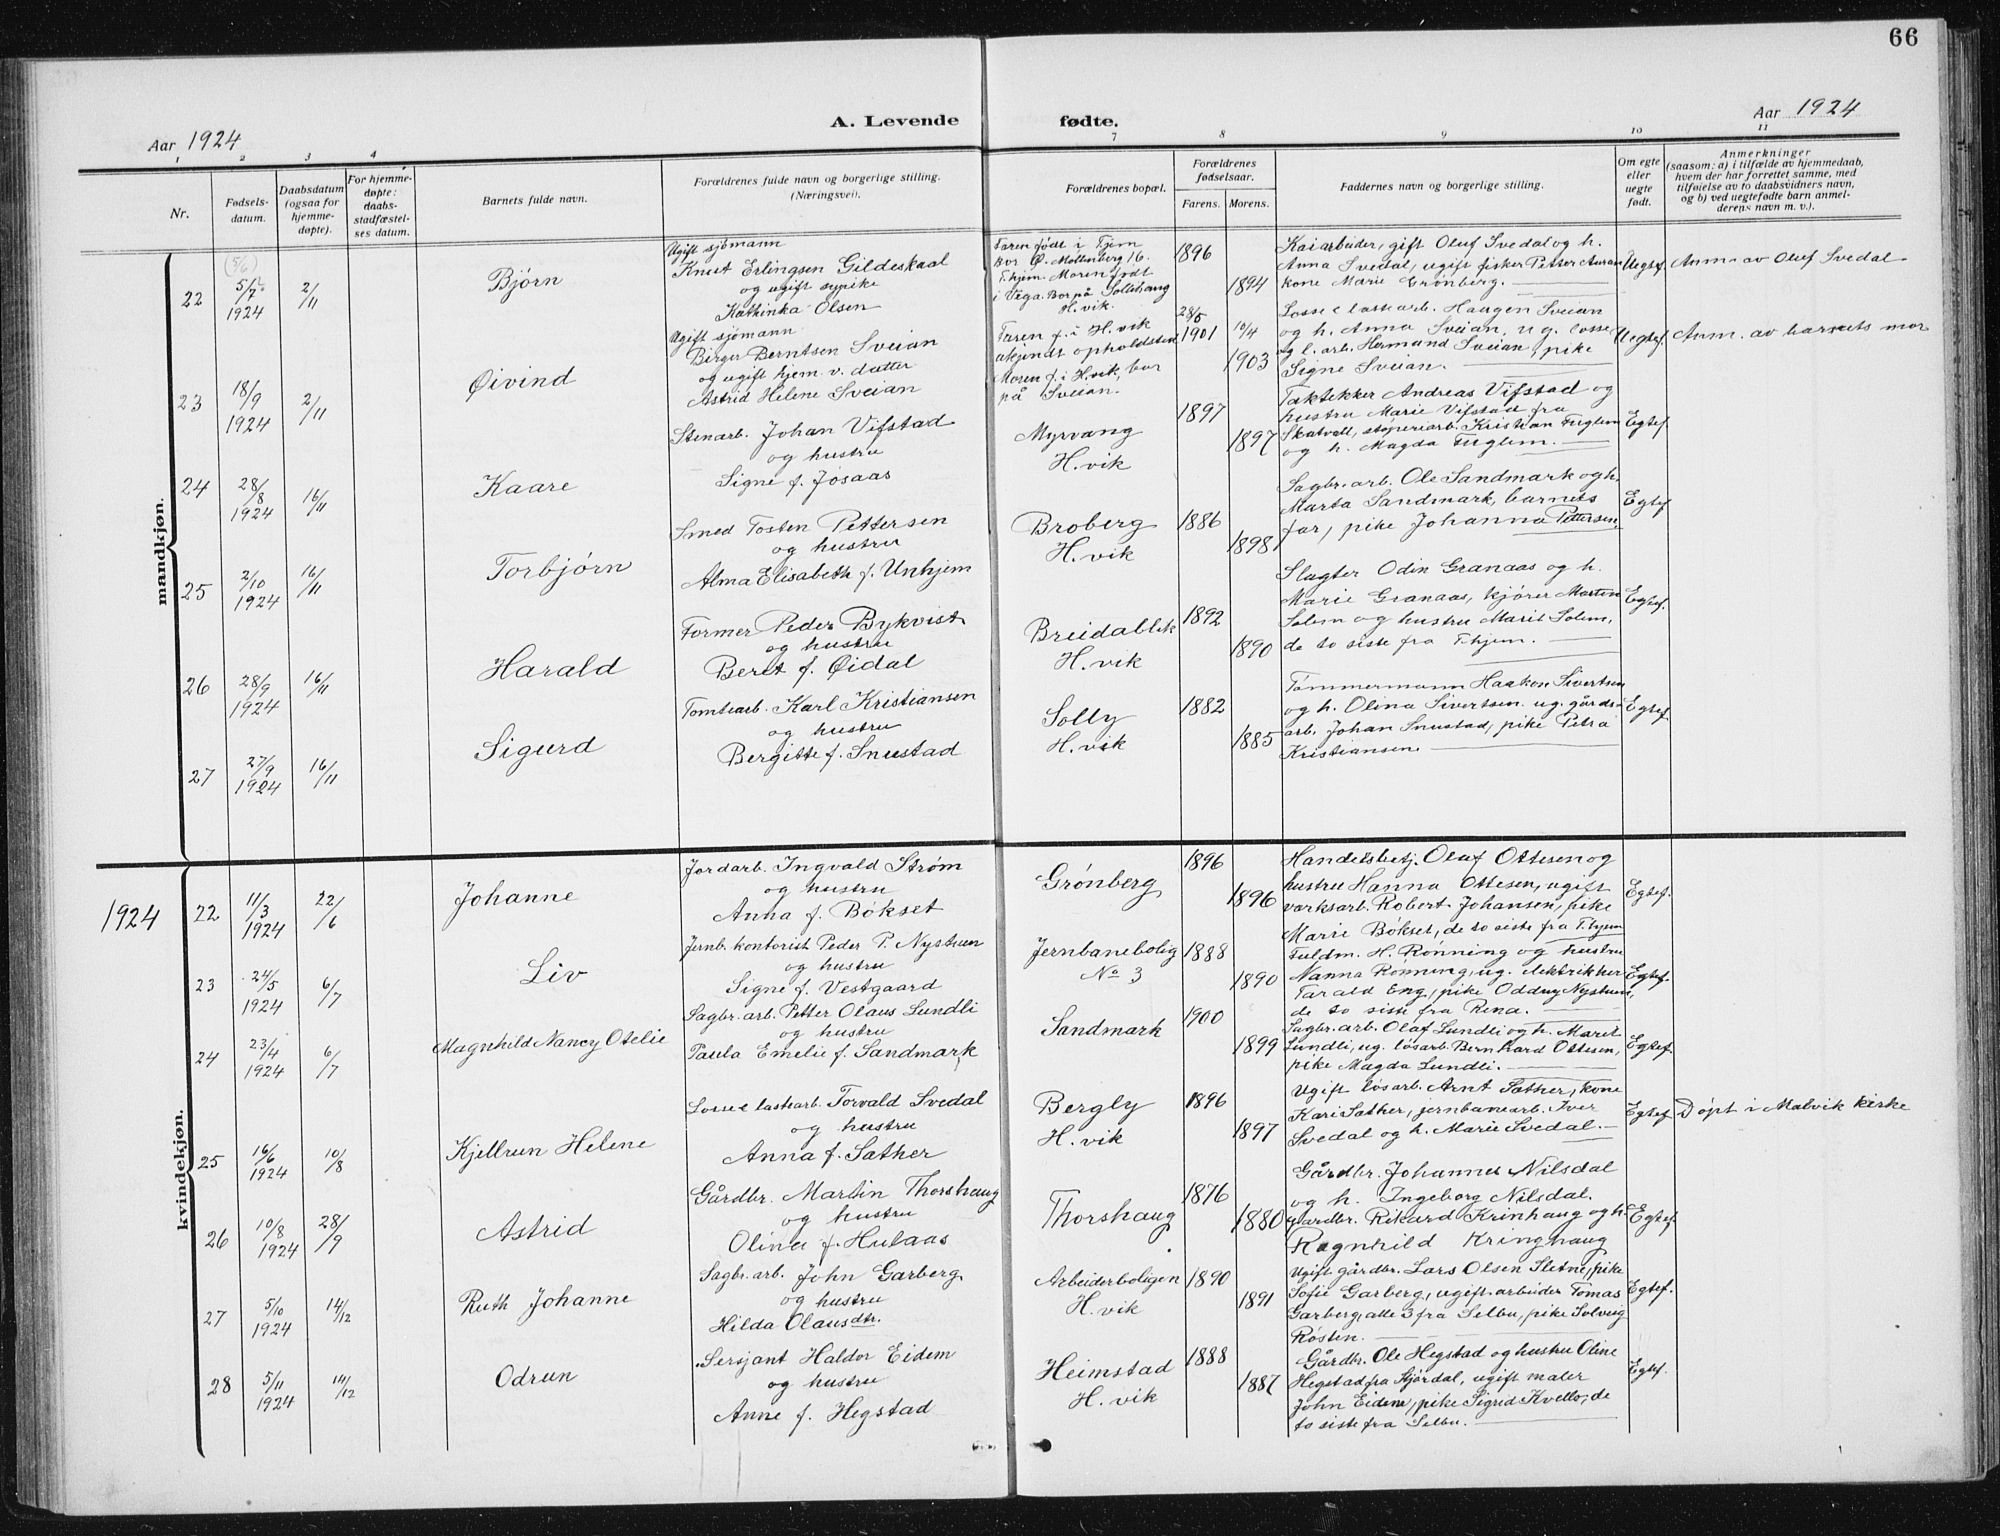 66
Aar 1924
A. Levende
fødte.
Aar 1924
1 2 3 4 7 8 9 10 11
Nr.
Fødsels-
datum.
Daabsdatum
(ogsaa for
hjemme-
døpte).
For hjemme-
døpte:
daabs-
stadfæstel-
ses datum.
Barnets fulde navn.
Forældrenes fulde navn og borgerlige stilling.
(Næringsvei).
Forældrenes bopæl.
Forældrenes
fødselsaar.
Farens. Morens.
Faddernes navn og borgerlige stilling.
Om egte
eller
uegte
født.
Anmerkninger
(saasom: a) i tilfælde av hjemmedaab,
hvem der har forrettet samme, med
tilføielse av to daabsvidners navn,
og b) ved uegtefødte barn anmel-
derens navn m. v.).
mandkjøn.
22
(5/6)
5/7
1924
2/11
Bjørn
Ugift sjømann
Knut Erlingsen Gildeskaal
og ugift sypike
Kathinka Olsen
Faren født i Tjem
Bor Ø. Møllenberg 16.
T.hjem. Moren født
i Vega. Bor på Solhaug
H.vik.
1896
1894
Kaiarbeider, gift Oluf Svedal og h.
Anna Svedal, ugift fisker Petter Auran
kone Marie Grønberg.
Uegtef.
Anm. av Oluf Svedal
23
18/9
1924
2/11
Øivind
Ugift sjømann
Birger Berntsen Sveian
og ugift hjem. v. datter
Astrid Helene Sveian
Faren f. i H.vik
ukjendt opholdsted
Moren f. i H.vik, bor
på Sveian.
28/5
1901
10/4
1903
Losse & lastearb. Haagen Sveian
og h. Anna Sveian, ug. losse
og l. arb. Hermand Sveian, pike
Signe Sveian.
Uegtef.
Anm. av barnets mor
24
28/8
1924
16/11
Kaare
Stenarb. Johan Vifstad
og hustru
Signe f. Josaas
Myrvang
H.vik
1897
1897
Taktekker Andreas Vifstad og
hustru Marie Vifstad fra
Skatvall, støperiarb. Kristian Fuglem
og h. Magda Fuglem.
Egtef.
25
2/10
1924
16/11
Torbjørn
Smed Tosten Pettersen
og hustru
Alma Elisabeth f. Unhjem
Broberg
H.vik
1886
1898
Sagbr. arb. Ole Sandmark og h.
Marta Sandmark, barnets
far, pike Johanna Pettersen.
Egtef
26
28/9
1924
16/11
Harald
Former Peder Bykvist
og hustru
Beret f. Øidal
Breidablik
H.vik
1892
1890
Slagter Odin Granaas og h.
Marie Granaas, kjører Morten
Solem og hustru Marit Solem,
de to siste fra T.hjem.
Egtef.
27
27/9
1924
16/11
Sigurd
Tomtearb. Karl Kristiansen
og hustru
Bergitte f. Snustad
Solly
H.vik
1882
1885
Tømmermann Haakon Sivertsen
og h. Olina Sivertsen ug. gårds-
arb. Johan Snustad, pike Petra
Kristiansen
Egtef.
1924
kvindekjøn.
22
11/3
1924
22/6
Johanne
Jordarb. Ingvald Strøm
og hustru
Anna f. Bökset
Grønberg
1896
1896
Handelsbetj. Oluf Ottesen og
hustru Hanna Ottesen, ugift
værksarb. Robert Johansen, pike
Marie Bökset, de to siste fra T.hjem
Egtef.
23
24/5
1924
6/7
Liv
Jernb. kontorist Peder P. Nystuen
og hustru
Signe f. Vestgaard
Jernbanebolig
No 3
1888
1890
Fuldm. H. Rønning og hustru
Nanna Rønning, ug. elektrikker
Tarald Eng, pike Oddny Nystuen,
de to siste fra Rena.
Egtef.
24
23/4
1924
6/7
Magnhild Nancy Otelie
Sagbr. arb. Petter Olaus Lundli
og hustru
Paula Emelie f. Sandmark
Sandmark
1900
1899
Sagbr. arb. Olaf Lundli og h. Marit
Lundli, ug. løsarb. Bernhard Ottesen,
pike Magda Lundli.
Egtef.
25
16/6
1924
10/8
Kjellrun Helene
Losse & lastearb. Torvald Svedal
og hustru
Anna f. Sæther
Bergly
H.vik
1896
1897
Ugift løsarb. Arnt Sæther, kone
Kari Sæther, jernbanearb. Iver
Svedal og h. Marie Svedal.
Egtef
Døpt i Malvik kirke
26
10/8
1924
28/9
Astrid
Gårdbr. Martin Thorshaug
og hustru
Olina f. Hulaas
Thorshaug
1876
1880
Gårdbr. Johannes Nilsdal
og h. Ingeborg Nilsdal.
gardbr. Rikard Krinhaug og h.
Ragnhild Kringhaug
Egtef.
27
5/10
1924
14/12
Ruth Johanne
Sagbr. arb. John Garberg
og hustru
Hilda Olausdtr.
Arbeiderboligen
H.vik
1890
1891
Ugift gårdbr. Lars Olsen Sletne, pike
Sofie Garberg, ugift arbeider Tomas
Garberg, alle 3 fra Selbu, pike Solveig
Røsten.
Egtef.
28
5/11
1924
14/12
Odrun
Sersjant Haldor Eidem
og hustru
Anne f. Hegstad
Heimstad
H.vik
1888
1887
Gårdbr. Ole Hegstad og hustru Oline
Hegstad fra Stjørdal, ugift maler
John Eidem, pike Sigrid Kvello, de
to siste fra Selbu.
Egtef.